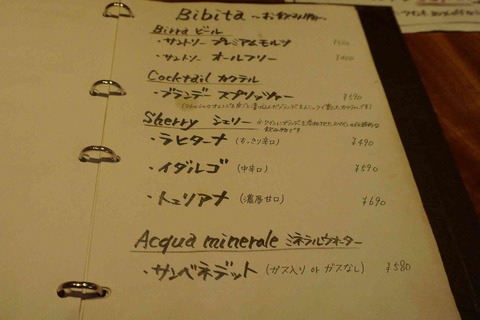 Bibita 〜お飲み物〜
Birra ビール
・サントリー プレミアムモルツ
・サントリー オールフリー
Cocktail カクテル
・ブランデー スプリッツァー ¥590
Sherry シェリー
・ラ ヒターナ (すっきり辛口) ¥490
・イダルゴ (中辛口) ¥590
・トュリアナ (濃厚甘口) ¥690
Acqua minerale ミネラルウォーター
・サンベネデット (ガス入り or ガスなし) ¥580